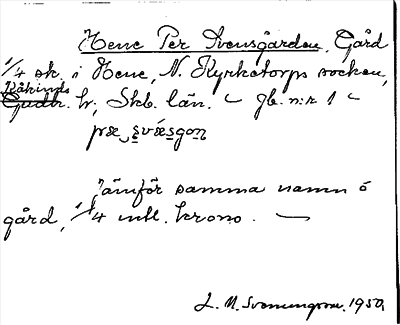 Hene Per Svensgården, Gård
1/4 sk. i Hene, N. Kyrketorps socken,
Kåkinds
Gudh. hr, Skb. län. — gb. n:r 1 —
pæ ̮ svǽsgoṉ
Jämför samma namn å
gård, 1/4 mtl. krono. —
L. M. Svenungsson. 1950.